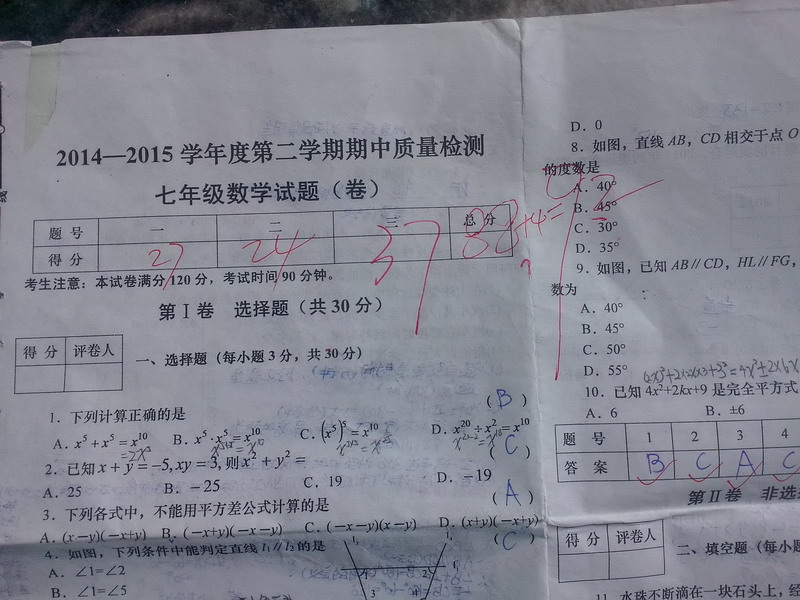 2014—2015 学年度第二学期期中质量检测
七年级数学试题（卷）
题 号 一 二 三 总 分
得 分 27 24 37 88+4=92
考生注意：本试卷满分 120 分，考试时间 90 分钟。
第Ⅰ卷 选择题（共 30 分）
得 分 评卷人
一、选择题（每小题 3 分，共 30 分）
1．下列计算正确的是 （ B ）
A. x⁵ + x⁵ = x¹⁰ B. x⁵·x⁵ = x¹⁰ C. (x⁵)⁵ = x¹⁰ D. x²⁰ ÷ x² = x¹⁰
2．已知 x + y = −5, xy = 3, 则 x² + y² = （ C ）
A. 25 B. −25 C. 19 D. −19
3．下列各式中，不能用平方差公式计算的是 （ A ）
A. (x−y)(−x+y) B. (−x+y)(−x−y) C. (−x−y)(x−y) D. (x+y)(−x+y)
4．如图，下列条件中能判定直线 l₁∥l₂的是 （ C ）
A．∠1=∠2
B．∠1=∠5
D．0
8．如图，直线 AB，CD 相交于点 O
的度数是
A．40°
B．45°
C．30°
D．35°
9．如图，已知 AB∥CD，HL∥FG，
数为
A．40°
B．45°
C．50°
D．55°
10．已知 4x²+2kx+9 是完全平方式
A．6 B．±6
题 号 1 2 3 4
答 案 B C A C
第Ⅱ卷 非选择
得 分 评卷人
二、填空题（每小题
11．水珠不断滴在一块石头上，经